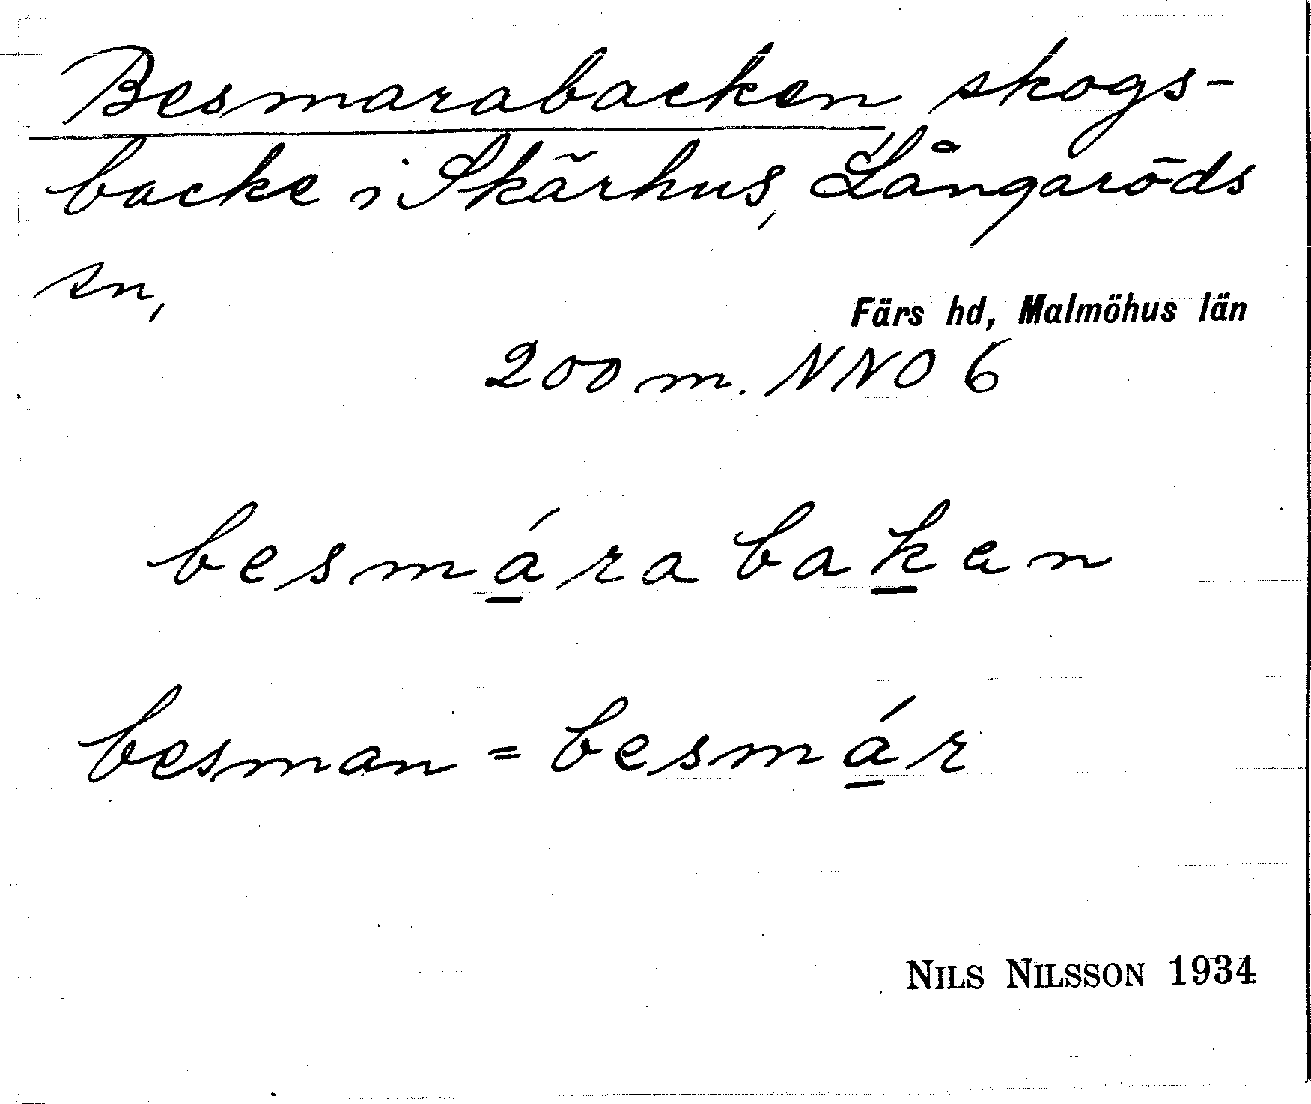 Besmarabacken skogs-
backe i Skärhus, Långaröds
sn,
Färs hd, Malmöhus län
200 m. NNO 6
besmárabaken
besman = besmár
NILS NILSSON 1934